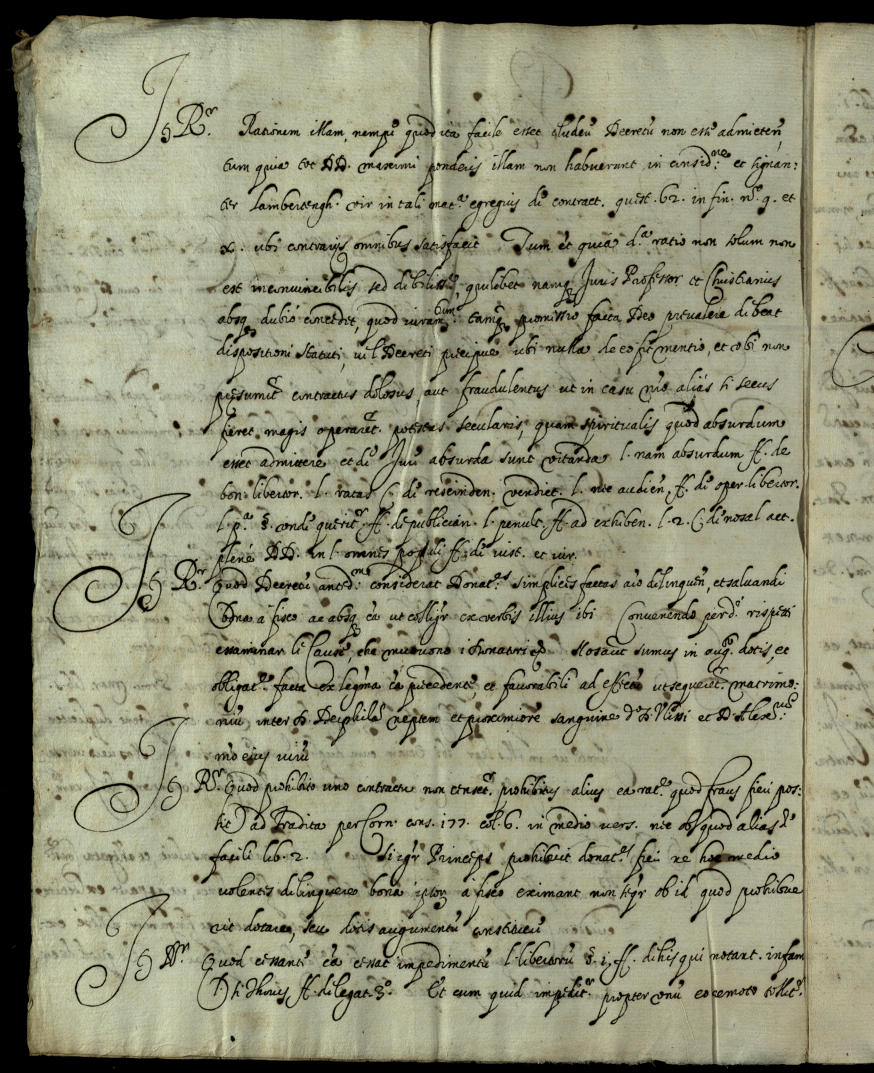 Rr. Rationem illam, nempe quod ita facile esset eludere Decretū non esse admitten
tum quia tot DD. maximi ponderis illam non habuerunt in considne: et signan:
ter Lambertengh. vir in tali matā egregius de contract. quest. 62. in fin. nº 9. et
X. ubi contrarijs omnibus satisfacit Tum et quia dā ratio non solum non
est inconvincibilis sed debiliss quilibet namq Juris Professor et Christianus
absq dubio concedet, quod iuram tum: tamq promissio facta Deo prevalere debeat
dispositioni Statuti, vel Decreti precipue ubi nulla de eo fit mentio, et ubi non
presumit contractus dolosus aut fraudulentus ut in casu nro alias si secus
foret magis operaret potestas secularis, quam spiritualis quod absurdum
esset admittere et de Jure absurda sunt vitanda l. nam absurdum ff. de
bon. libertor. l. ratas C. de rescinden. vendict. l. nec audien ff. de oper. libertor.
l. pā §. conde querit ff. de publician. l. penult. ff. ad exhiben. l. 2. C. de noxal act.
plene DD. in l. omnes populi ff. de iust. et iur.
Rr Quod Decretū antdm considerat Donats simplices factas aīo delinquen, et salvandi
Bona a fisco ac absq cā ut colligr ex verbis illius ibi Convenendo per dº rispetti
essaminar le Cause, che muovono i Donatori Nos aut sumus in aug dotis, et
obligat facta ex legma cā precedente et favorabili ad effectū ut sequeret matrimo:
niū inter D. Deiphilā neptem et proximiorē sanguine
mo eius virū
Rr. Quod prohibito uno contractu non censet prohibitus alius ea rat quod fraus fieri pos:
sit ad Tradita per Corn. cons. 177. col. 6. in medio vers. nec obquod alias
facili lib. 2. Si igr Princeps prohibuit donats fieri ne hoc medio
volentes delinquere bona ipsor a fisco eximant non seqr ob id quod prohibue
rit dotare, seu dotis augumentū constituere
Rr. Quod cessante cā cessat impedimentū l. libertorū §. 1. ff. de his qui notant. infam
ff. de legat. 3º. Et cum quid impedit propter unū eo remoto tollit